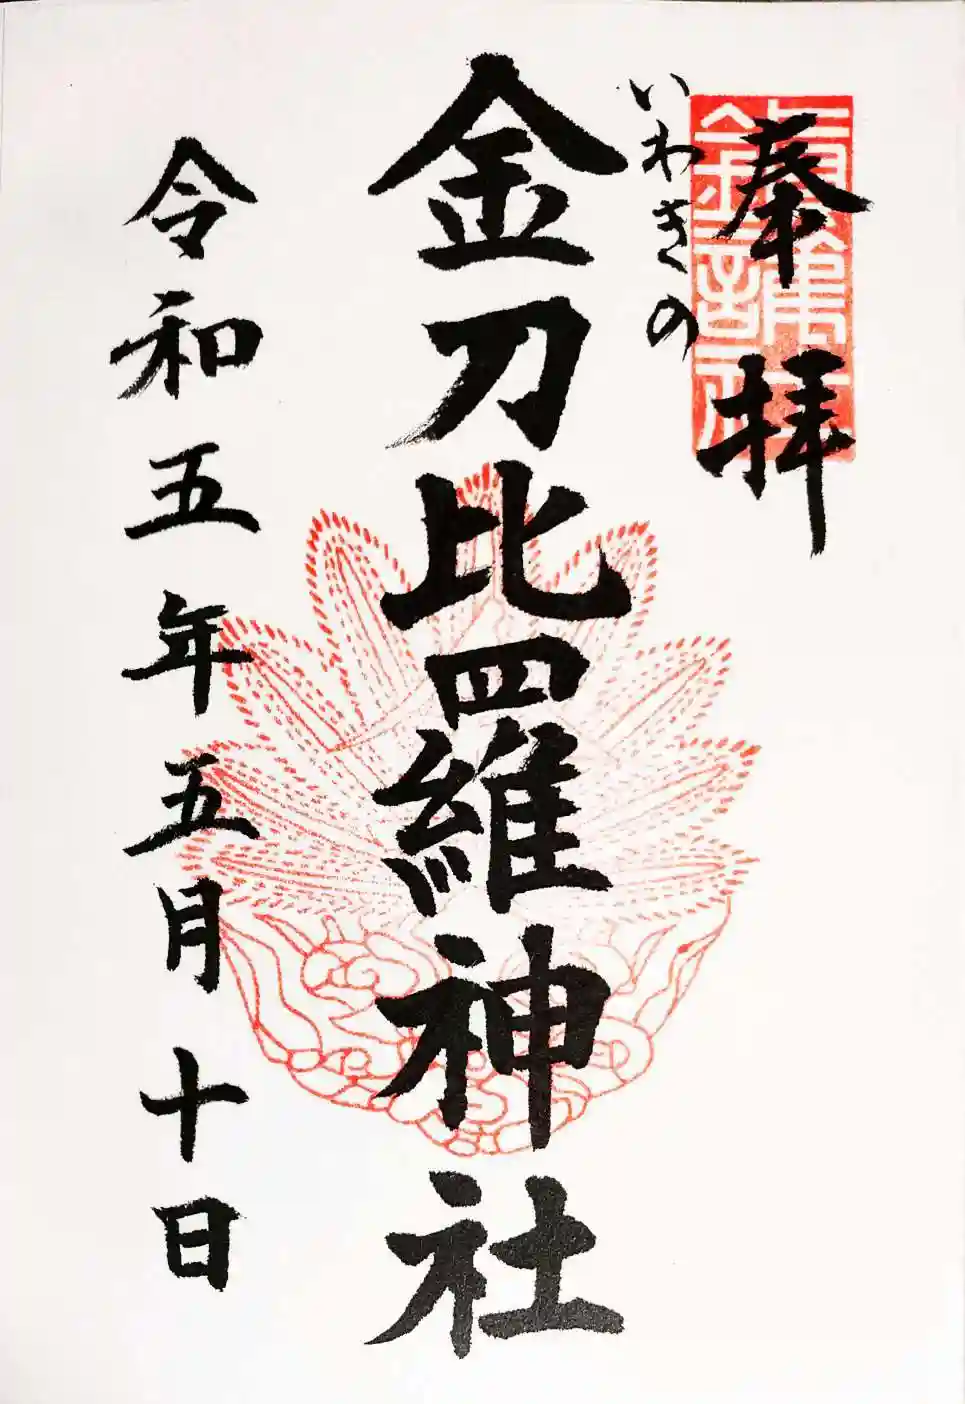 奉拝
いわきの
金刀比羅神社
令和五年五月十日